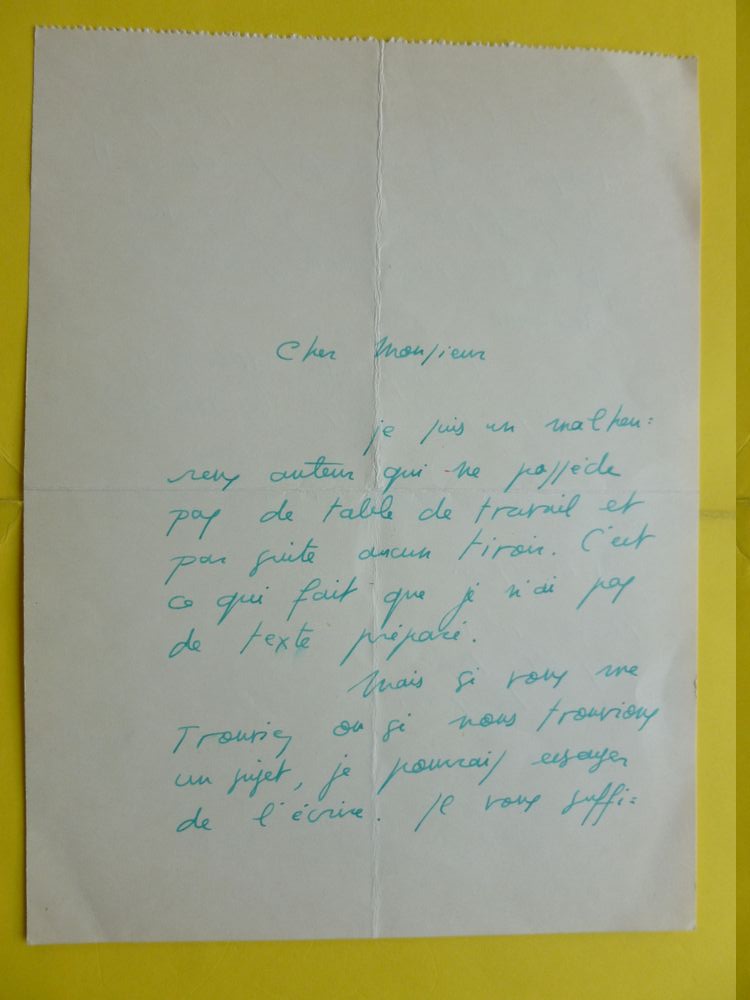 Cher Monsieur
je suis un malheu=
reux auteur qui ne possède
pas de table de travail et
par suite aucun tiroir. C'est
ce qui fait que je n'ai pas
de texte préparé.
Mais si vous me
Trouviez ou si nous trouvions
un sujet, je pourrais essayer
de l'écrire. Il vous suffi=